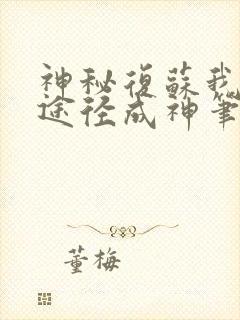 神秘復蘇我
途径成神筆
董梅